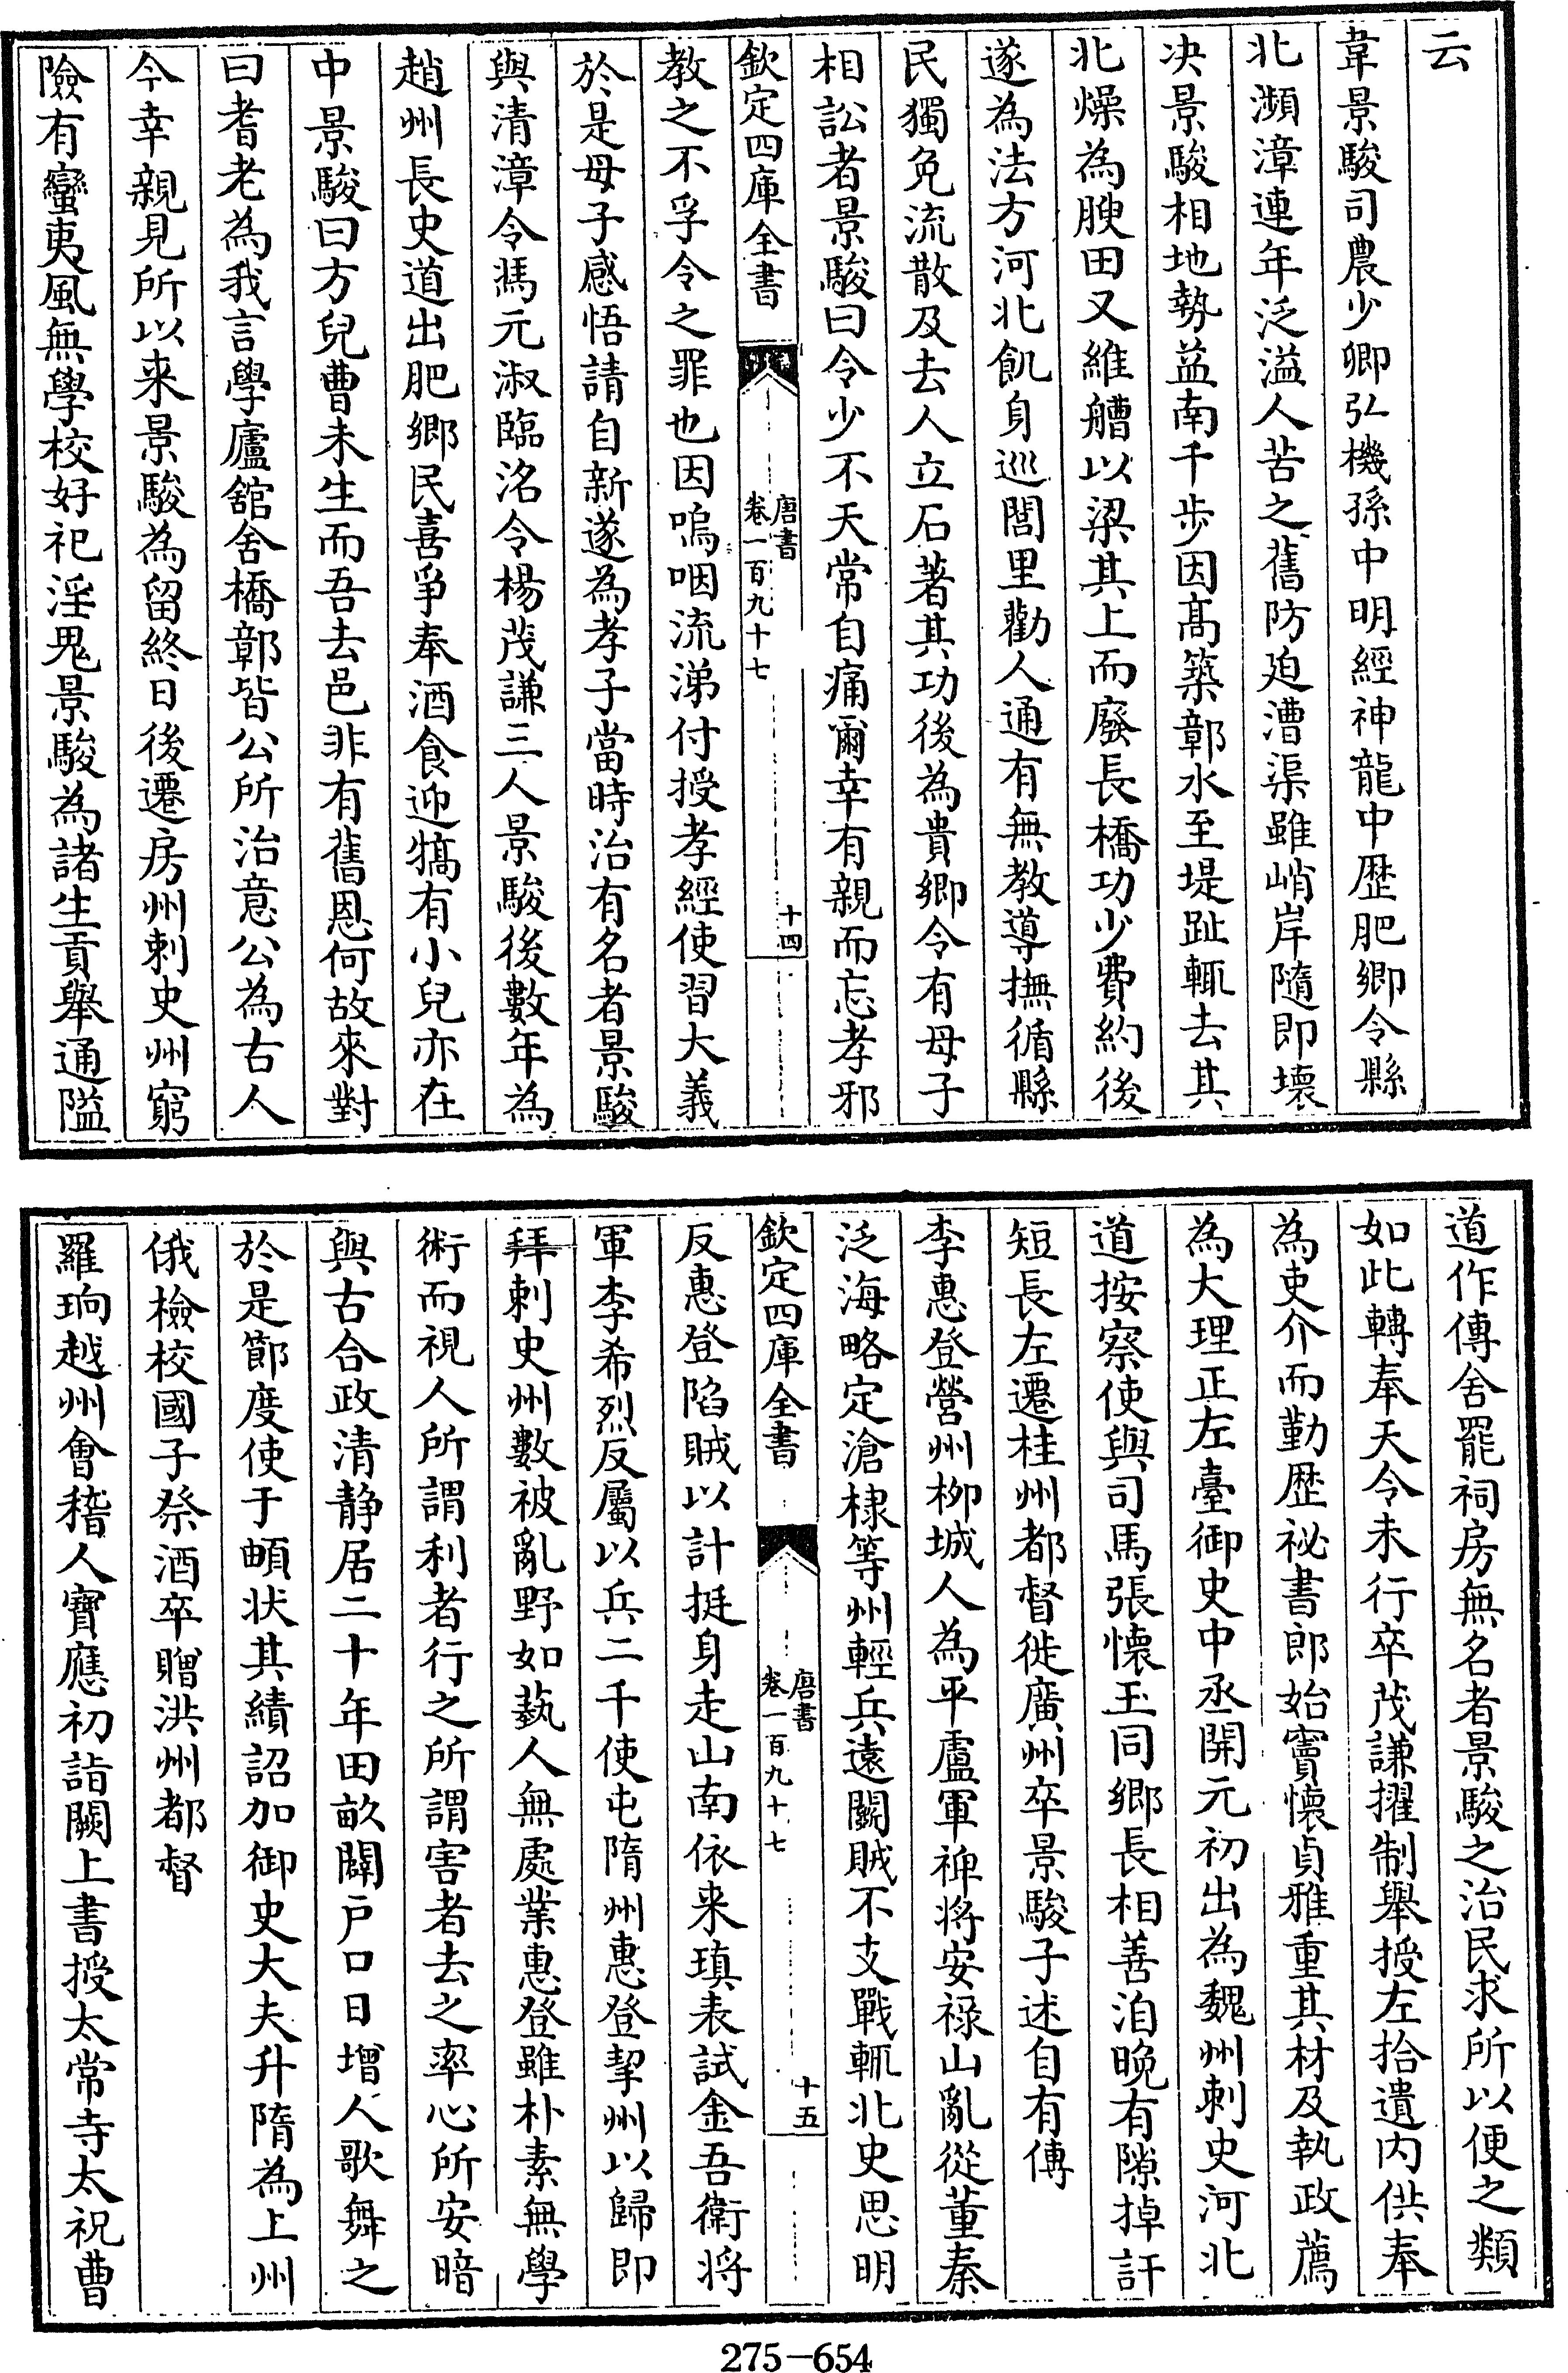 云
韋景駿司農少卿弘機孫中明經神龍中歴肥鄉令縣
北瀕漳連年泛溢人苦之舊防迫漕渠雖峭岸隨即壞
决景駿相地勢益南千步因髙築鄣水至堤趾輒去其
北燥為腴田又維艚以梁其上而廢長橋功少費約後
遂為法方河北飢身巡閭里勸人通有無教導撫循縣
民獨免流散及去人立石著其功後為貴鄉令有母子
相訟者景駿曰令少不天常自痛爾幸有親而忘孝邪
欽定四庫全書
唐書
卷一百九十七
十四
教之不孚令之罪也因嗚咽流涕付授孝經使習大義
於是母子感悟請自新遂為孝子當時治有名者景駿
與清漳令馮元淑臨洺令楊茂謙三人景駿後數年為
趙州長史道出肥鄉民喜爭奉酒食迎犒有小兒亦在
中景駿曰方兒曹未生而吾去邑非有舊恩何故來對
曰耆老為我言學廬舘舍橋鄣皆公所治意公為古人
今幸親見所以来景駿為留終日後遷房州刺史州窮
險有蠻夷風無學校好祀淫鬼景駿為諸生貢舉通隘
道作傳舍罷祠房無名者景駿之治民求所以便之類
如此轉奉天令未行卒茂謙擢制舉授左拾遺内供奉
為吏介而勤歴祕書郎始竇懷貞雅重其材及執政薦
為大理正左臺御史中丞開元初出為魏州刺史河北
道按察使與司馬張懷玉同鄉長相善洎晚有隙掉訐
短長左遷桂州都督徙廣州卒景駿子述自有傳
李惠登營州柳城人為平盧軍裨將安禄山亂從董秦
泛海略定滄棣等州輕兵遠鬬賊不支戰輒北史思明
欽定四庫全書
唐書
卷一百九十七
十五
反惠登陷賊以計挺身走山南依来瑱表試金吾衛將
軍李希烈反屬以兵二千使屯隋州惠登挈州以歸即
拜刺史州數被亂野如爇人無處業惠登雖朴素無學
術而視人所謂利者行之所謂害者去之率心所安暗
與古合政清静居二十年田畝闢户口日增人歌舞之
於是節度使于頔状其績詔加御史大夫升隋為上州
俄檢校國子祭酒卒贈洪州都督
羅珦越州會稽人寶應初詣闕上書授太常寺太祝曹
275-654